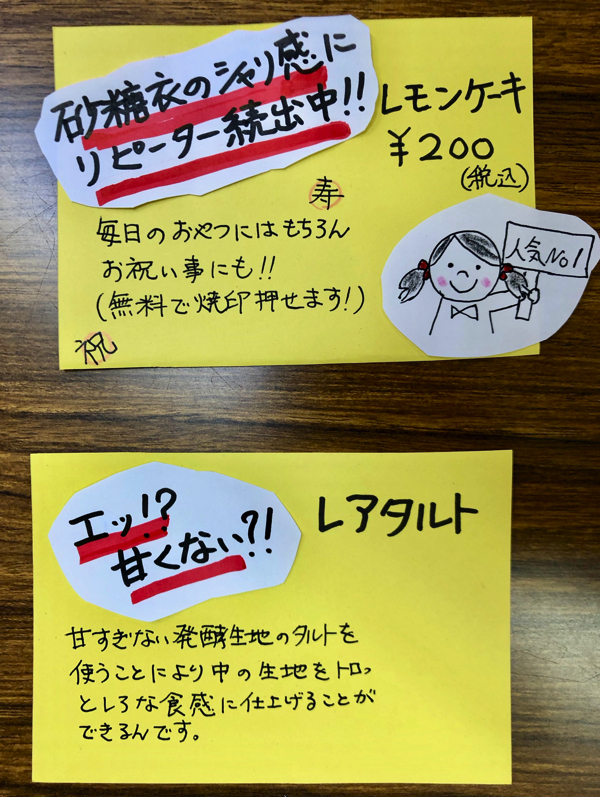 砂糖衣のシャリ感に
リピーター続出中!!
レモンケーキ
¥200
(税込)
寿
毎日のおやつにはもちろん
お祝い事にも!!
(無料で焼印押せます!)
祝
人気No1
エッ!?
甘くない?!
レアタルト
甘すぎない発酵生地のタルトを
使うことにより中の生地をトロッ
としろな食感に仕上げることが
できるんです。